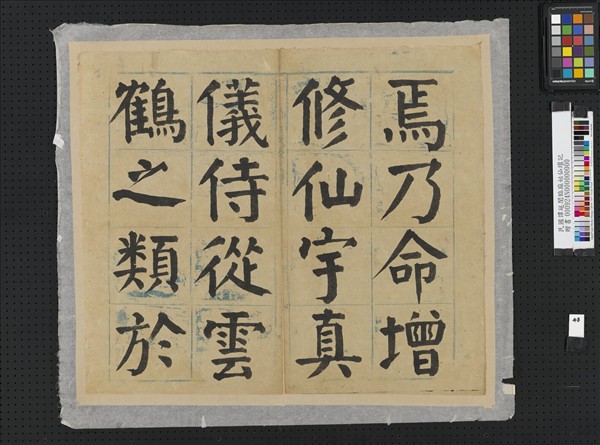 焉乃命增
修仙宇真
儀侍從雲
鶴之類於